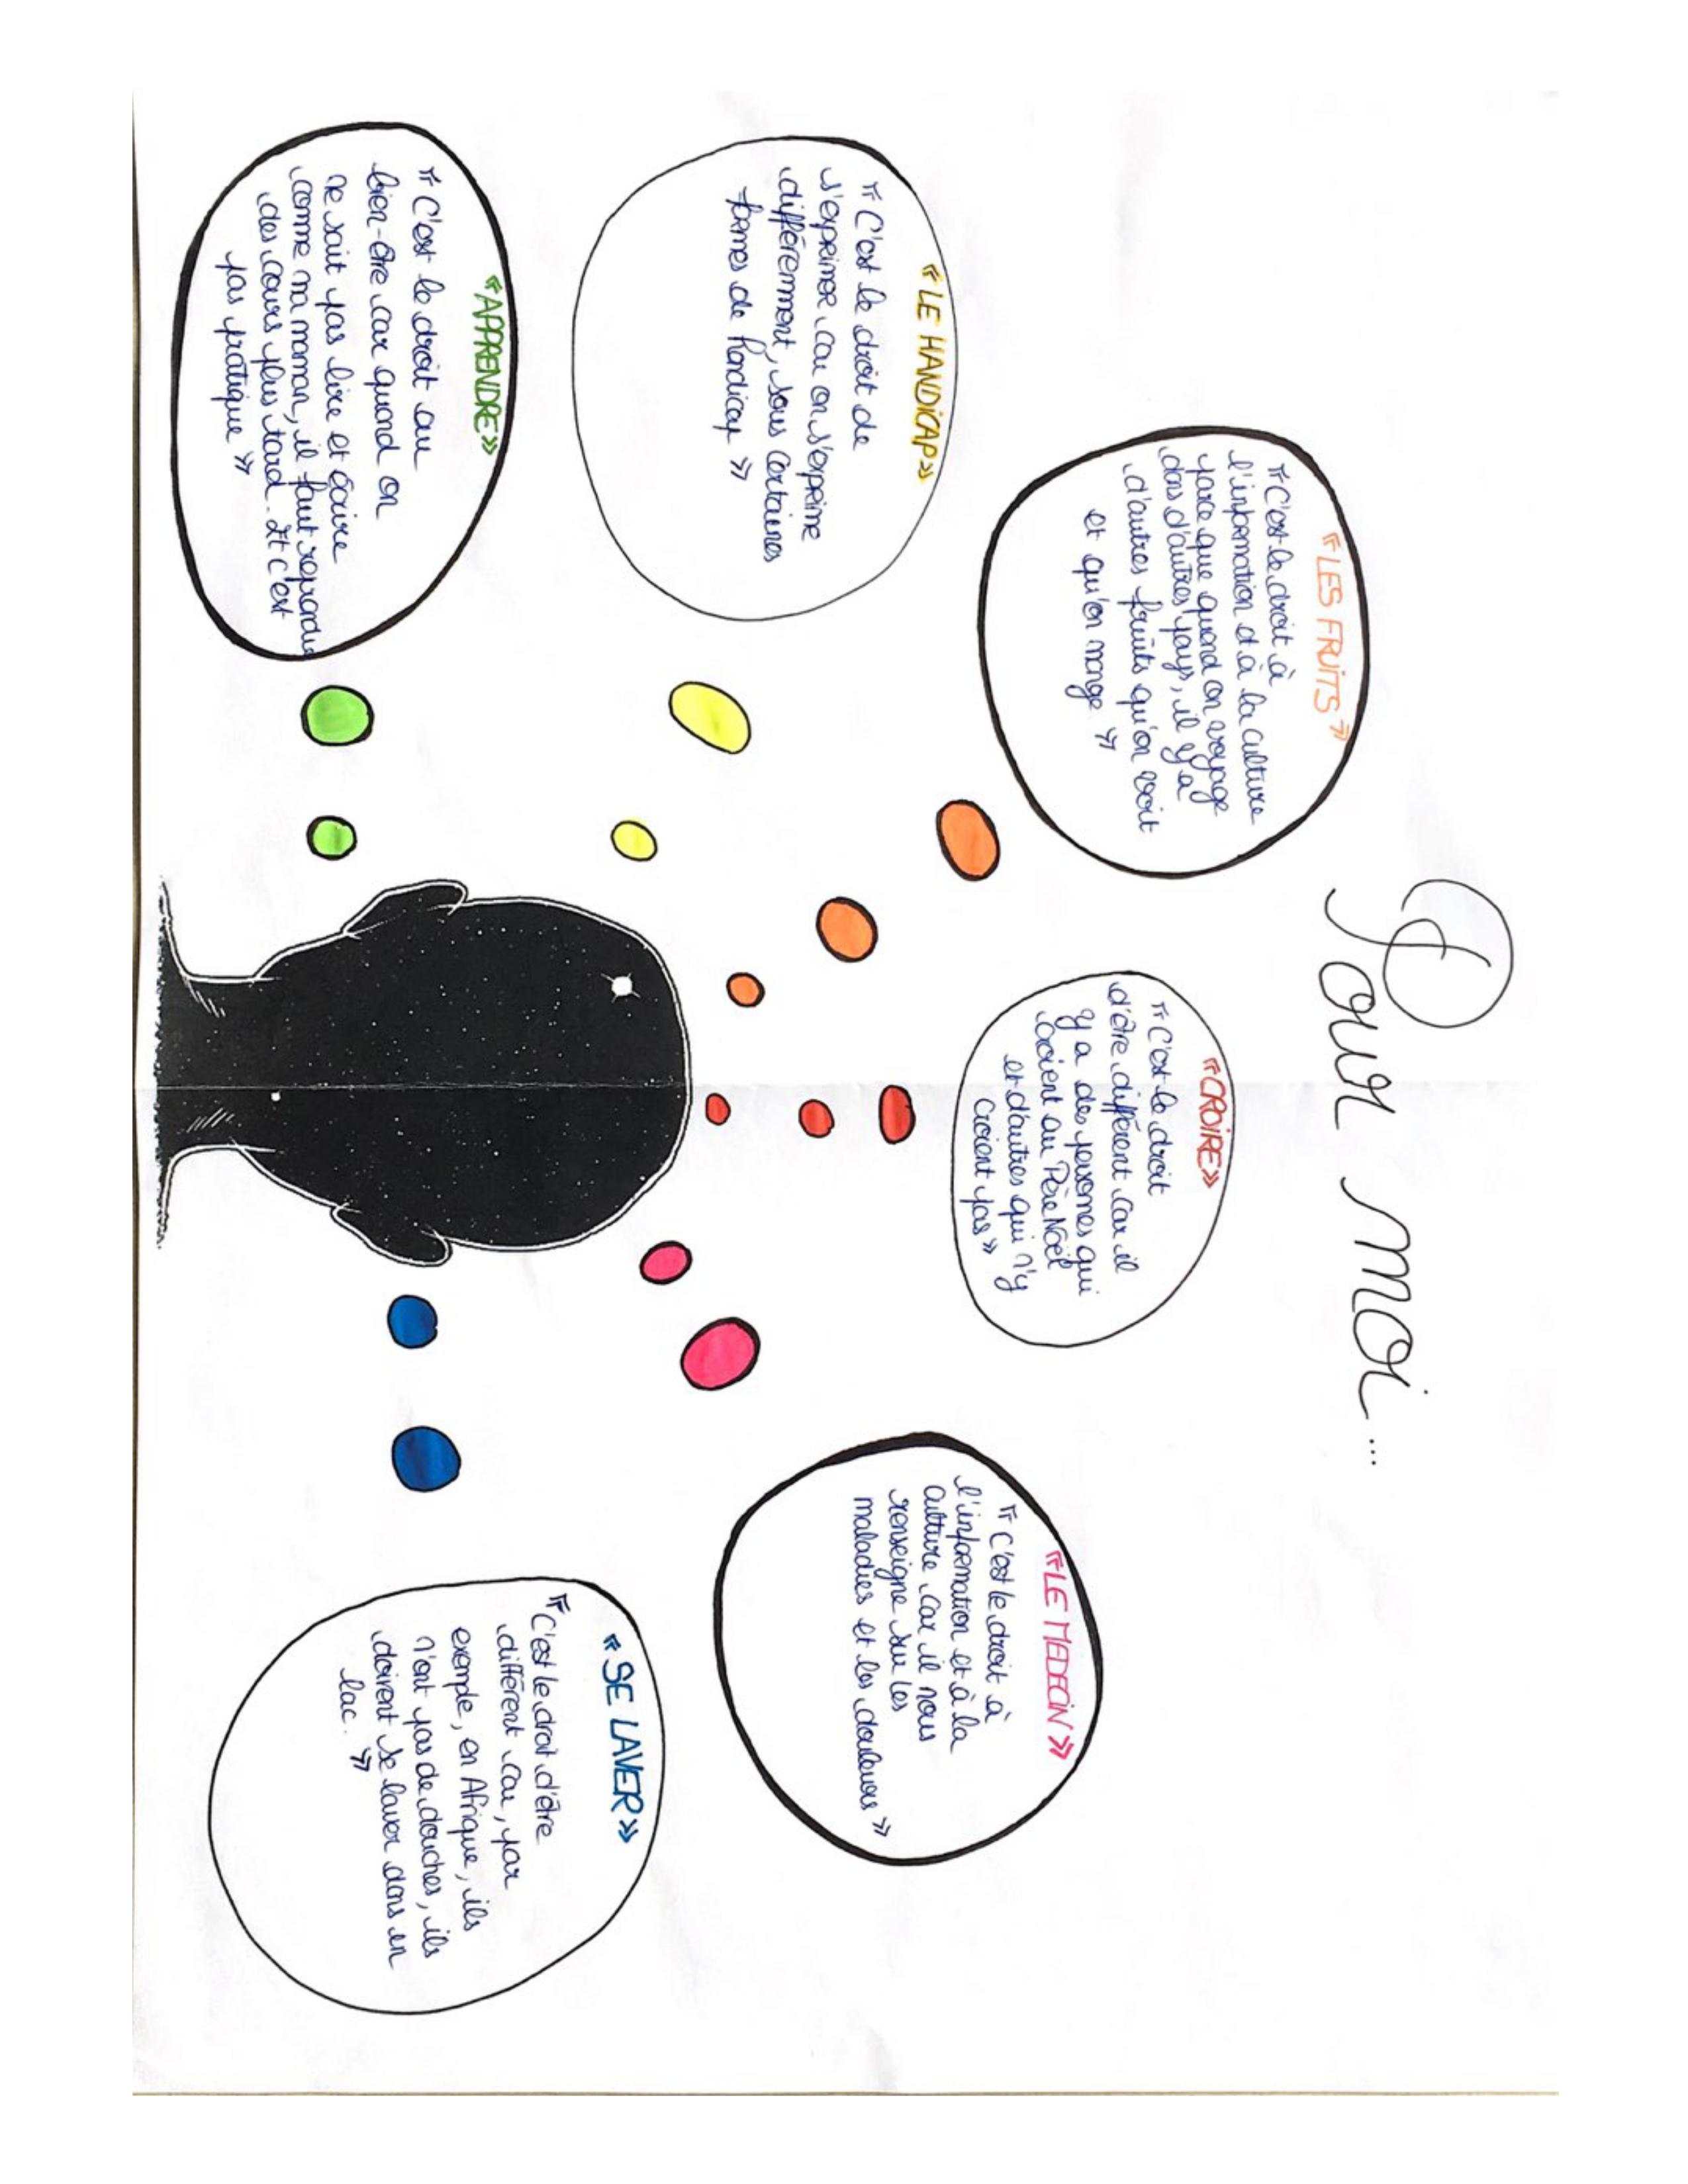 Pour moi...
« APPRENDRE »
« C'est le droit au
bien-être car quand on
ne sait pas lire et écrire
comme ma maman, il faut reprendre
des cours plus tard. Et c'est
pas pratique »
« LE HANDICAP »
« C'est le droit de
s'exprimer car on s'exprime
différemment, sous certaines
formes de handicap »
« LES FRUITS »
« C'est le droit à
l'information et à la culture
parce que quand on voyage
dans d'autres pays, il y a
d'autres fruits qu'on voit
et qu'on mange »
« CROIRE »
« C'est le droit
d'être différent car il
y a des personnes qui
croient au Père Noël
et d'autres qui n'y
croient pas »
« LE MEDECIN »
« C'est le droit à
l'information et à la
culture car il nous
renseigne sur les
maladies et les douleurs »
« SE LAVER »
« C'est le droit d'être
différent car, par
exemple, en Afrique, ils
n'ont pas de douches, ils
doivent se laver dans un
lac. »